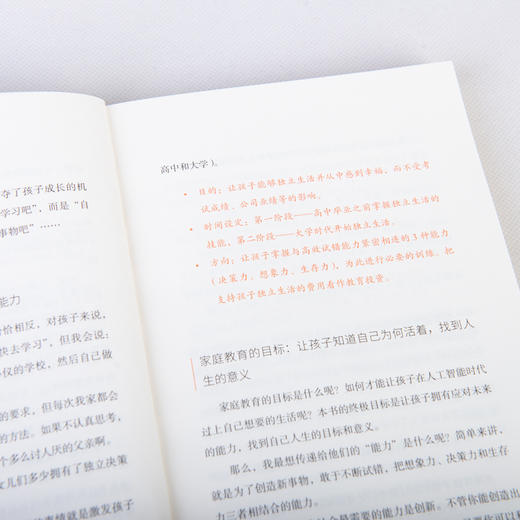 夺了孩子成长的机
学习吧”，而是“自
事物吧”……
能力
恰恰相反，对孩子来说，
快去学习”，但我会说：
仪的学校，然后自己做
的要求，但每次我家都会
的方法。如果不认真思考，
个多么讨人厌的父亲啊。
女儿们多少拥有了独立决策
事情就是激发孩子
高中和大学）。
• 目的：让孩子能够独立生活并从中感到幸福，而不受考
试成绩、公司业绩等的影响。
• 时间设定：第一阶段——高中毕业之前掌握独立生活的
技能，第二阶段——大学时代开始独立生活。
• 方向：让孩子掌握与高效试错能力紧密相连的3种能力
（决策力、想象力、生存力），为此进行必要的训练。把
支持孩子独立生活的费用看作教育投资。
家庭教育的目标：让孩子知道自己为何活着，找到人
生的意义
家庭教育的目标是什么呢？如何才能让孩子在人工智能时代
过上自己想要的生活呢？本书的终极目标是让孩子拥有应对未来
的能力，找到自己人生的目标和意义。
那么，我最想传递给他们的“能力”是什么呢？简单来讲，
就是为了创造新事物，敢于不断试错，把想象力、决策力和生存
力三者相结合的能力。
社会最需要的能力是创新。不管你能创造出